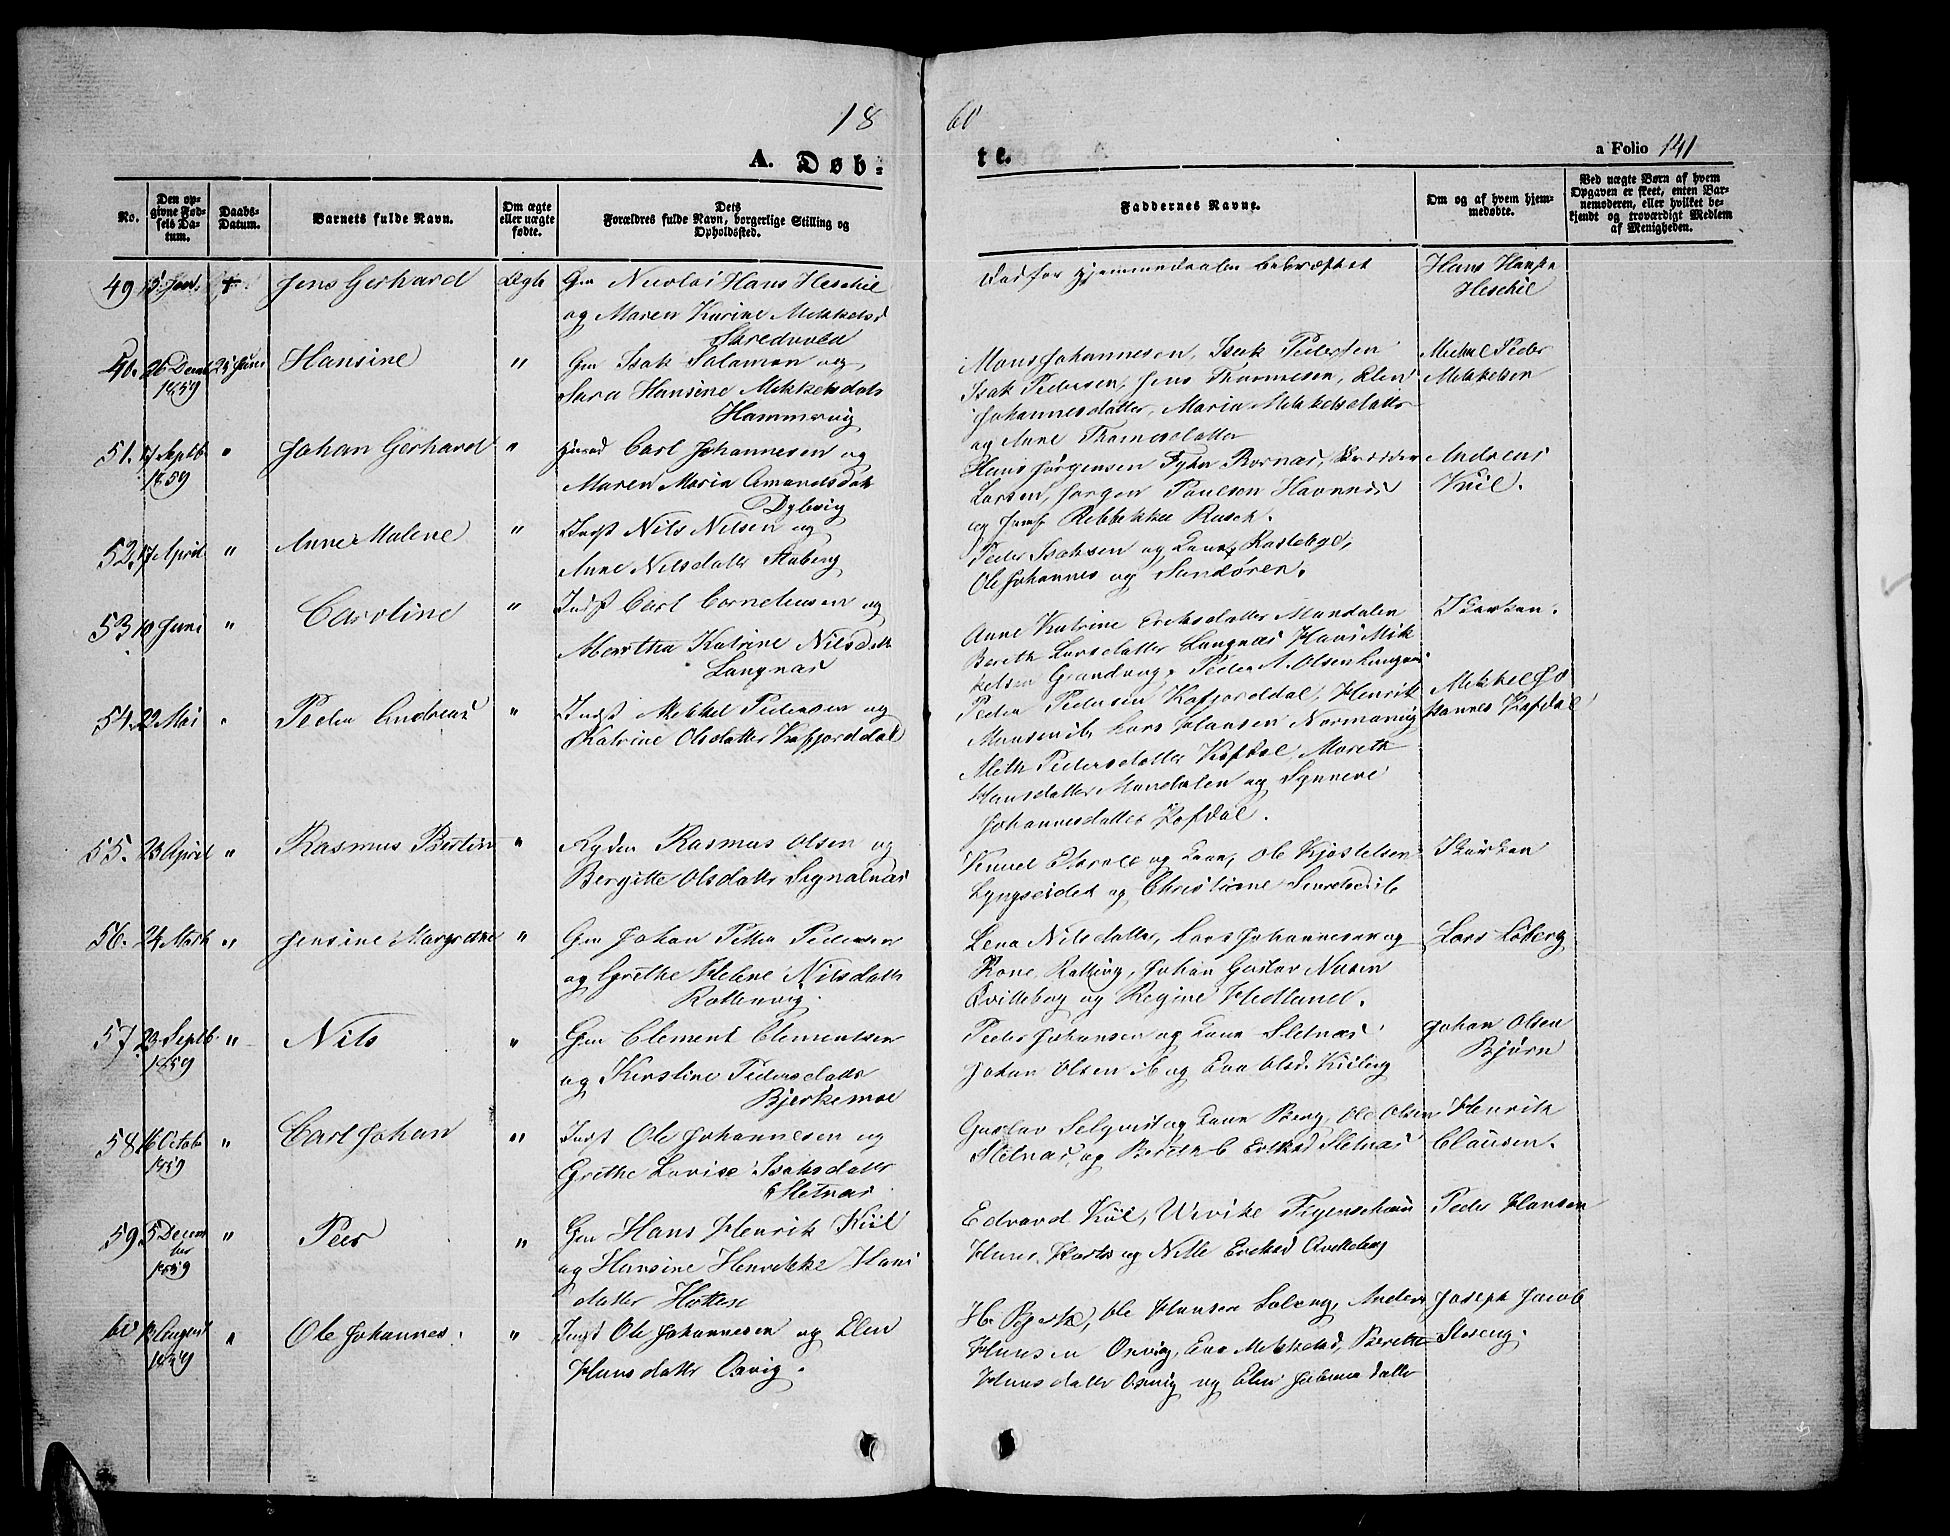 18
60
A. Døb-
te.
a Folio 141
No.
Den op-
givne Fød-
sels Da-
tum.
Daabs-
Datum.
Barnets fulde Navn.
Om ægte
eller uægte
fødte.
Dets
Forældres fulde Navn, borgerlige Stilling og
Opholdssted.
Faddernes Navne.
Om og af hvem hjem-
medøbte.
Ved uægte Børn af hvem
Opgaven er skeet, enten Bar-
nemoderen, eller hvilket be-
kjendt og troværdigt Medlem
af Menigheden.
49
Jens Gerhard
Ægte
Gm Nicolai Hans Heschil
og Maren Karine Mekkelsd
Skredvold
hjemmedaaben bekræftet
Hans Hansen
Heschil
26 Decmb
1859
25 Juni
Hansine
"
Gm Isak Salamon og
Sara Hansine Mekkelsdatr
Hammervig
Mons Johannesen, Isak Pedersen
Isak Pedersen, Jens Thommesen, Elen
Johannesdatter, Maria Mekkelsdatter
og Anne Thomesdatter
Mickel Peder
Mekkelsen
51.
17 Septb
1859
"
Johan Gerhard
"
Carl Johannesen og
Maren Maria Amundsdatr
Dybvig
Hans Jørgensen
Larsen, Jørgen Paulsen Havnnes
og Jomf Rebbekka Rasch.
Andreas
Kiil.
52.
17 April
"
Anne Malene
"
Indst Nils Nilsen og
Anne Nilsdatter Aaberg
Peder Isaksen og Kone, Kastebye,
Ole Johannes og Sundøren.
53
10 Juni
"
Caroline
"
Indst Carl Corneliusen og
Merrtha Katrine Nilsdatr
Langnas
Anne Katrine Eriksdatter Mandalen
Bereth Larsdatter Langnas Hans Mik
kelsen Grundvog, Peder A. Olsen Langnas
54.
22 Mai
"
Peder Andreas
"
Indst Mekkel Pedersen og
Katrine Olsdatter Kafjorddal
Peder Pedersen Kafjorddal, Henrik
Monsen ib, Lars Hansen Normanvig
Aleth Pedersdatter Kafdal, Mareth
Hansdatter Mandalen og Synneve
Johannesdatter Kafdal.
Mekkel Jo
hannes Kafdal
55.
23 April
"
Rasmus Bertin
"
Ryder Rasmus Olsen og
Bergitte Olsdatter Signalnas
og Kone, Ole Kjostelsen
Lyngseidet og Christiane
56.
24 Marts
"
Jensine Margrethe
"
Gm Johan Petter Pedersen
og Grethe Helene Nilsdatter
Rottenvig.
Lena Nilsdatter, Lars Johannesen og
Kone, Rottevig, Johan Gustav Nilsen
Qvittebog og Regine Hedlund.
Lars Loberg
57.
29 Septb.
1859
"
Nils
"
Gm Clement Clementsen
og Kerstine Pedersdatter
Bjerkemoe
Peder Johansen og Kone Sletnas
Johan Olsen ib og Eva Olsd. Kileng
Johan Olsen
Bjørn
58
16 Octob
1859
"
Carl Johan
"
Indst Ole Johannesen og
Grethe Lovise Isaksdatter
Sletnas
Gustav Selqvist og Kone Berg, Ole Olsen
Sletnas, og Bereth C Eriksd Sletnas
Henrik
Clausen.
59
5 Decem
ber
1859
"
Peer
"
Gm Hans Henrik Kiil
og Hansine Henrikke Hans
datter Hottese
Edvard Kiil, Ulrike Figenschau
Hans og Nille Eriksd Qvitteberg
Peder Hansen
60
August
1859
"
Ole Johannes.
"
Indst Ole Johannesen og Elen
Hansdatter Oxvig.
Ole Hansen Soleng, Anders
Hansen Oxvig, Eva Mekkelsd, Berethe
Hansdatter Oxvig og Elen datter
Joseph Jacob
Storeng.